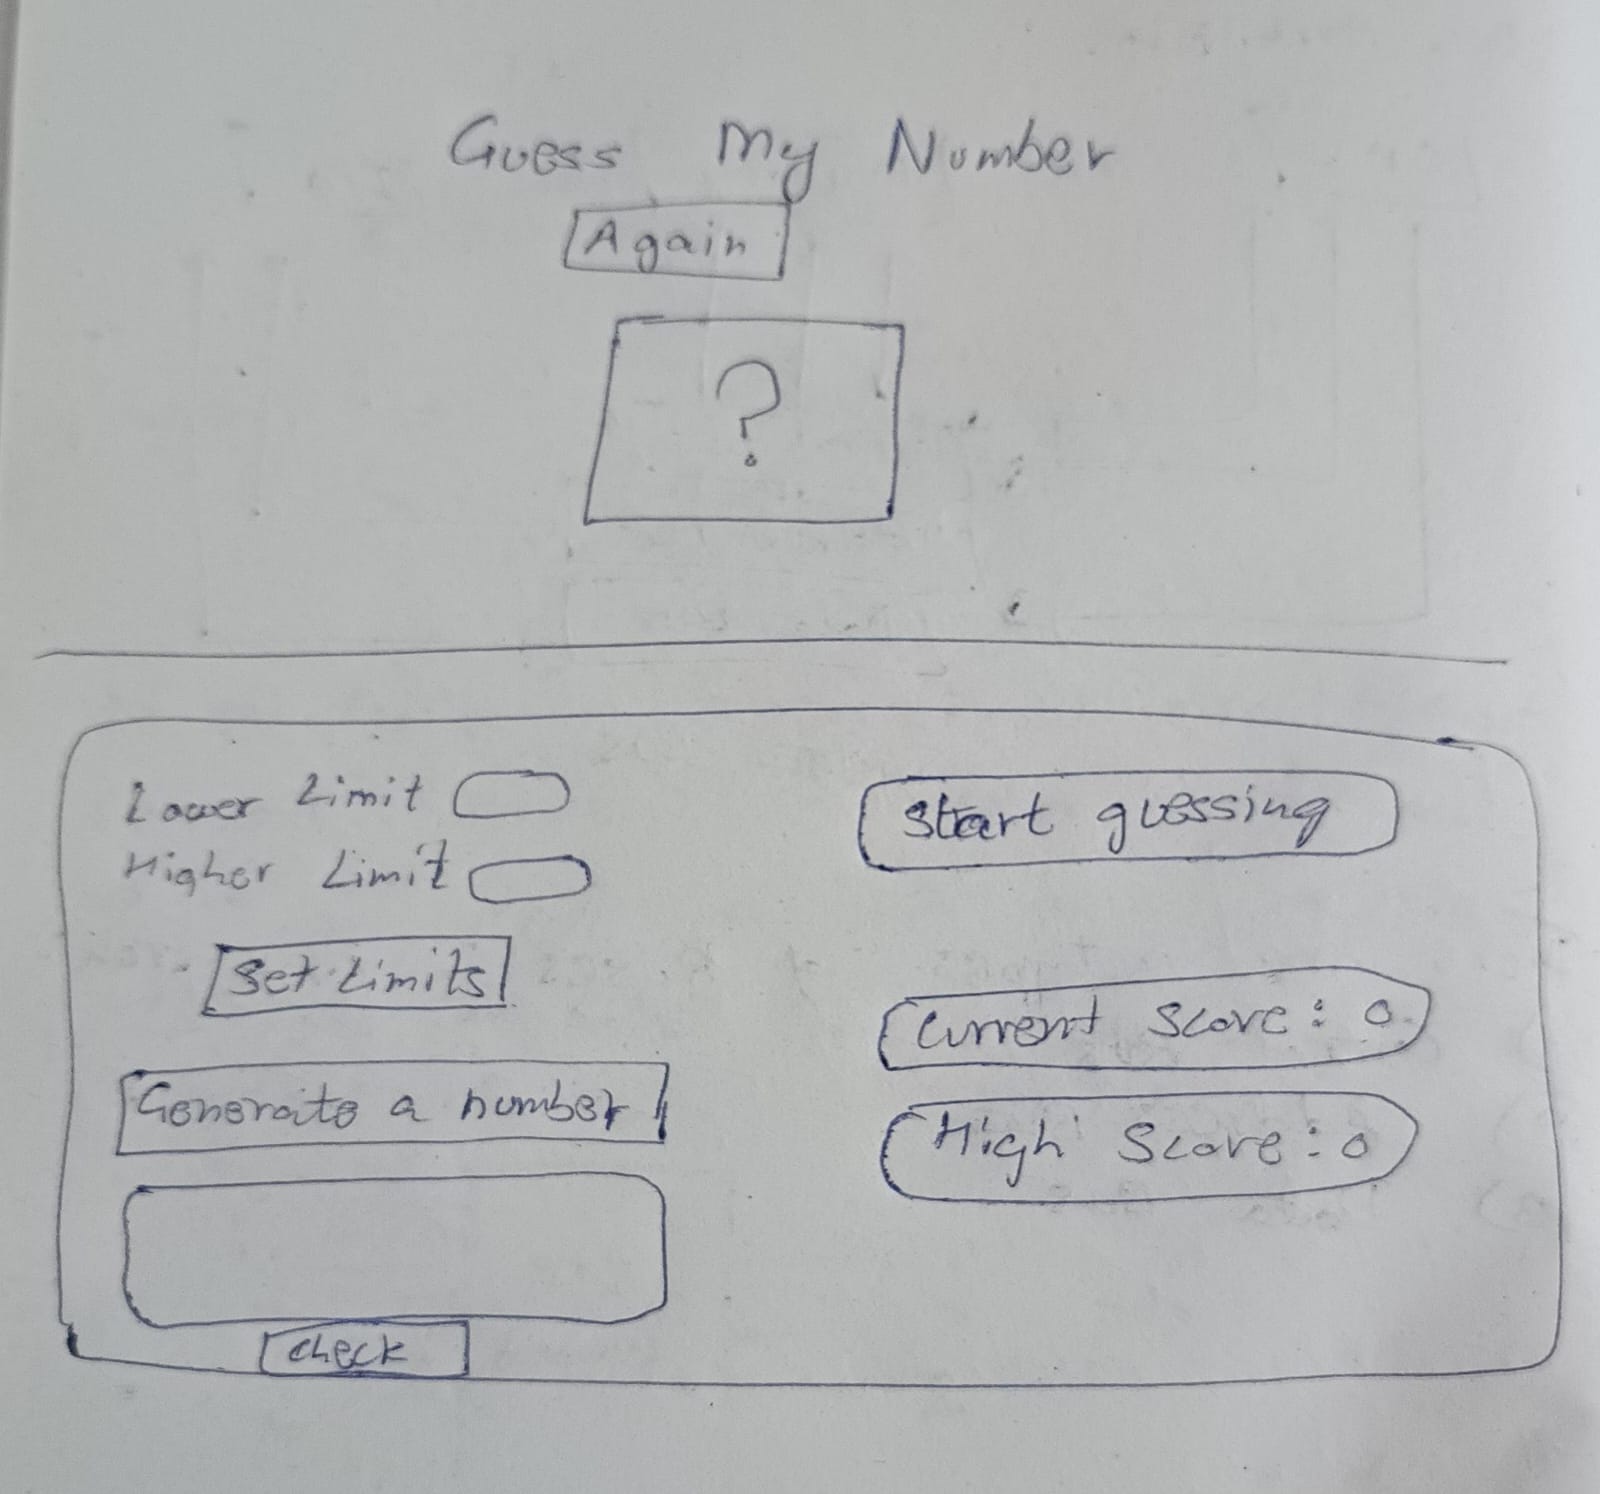 Guess My Number
Again
?
Lower Limit
Higher Limit
Set Limits
Generate a number
check
Start guessing
Current Score: 0
High Score: 0